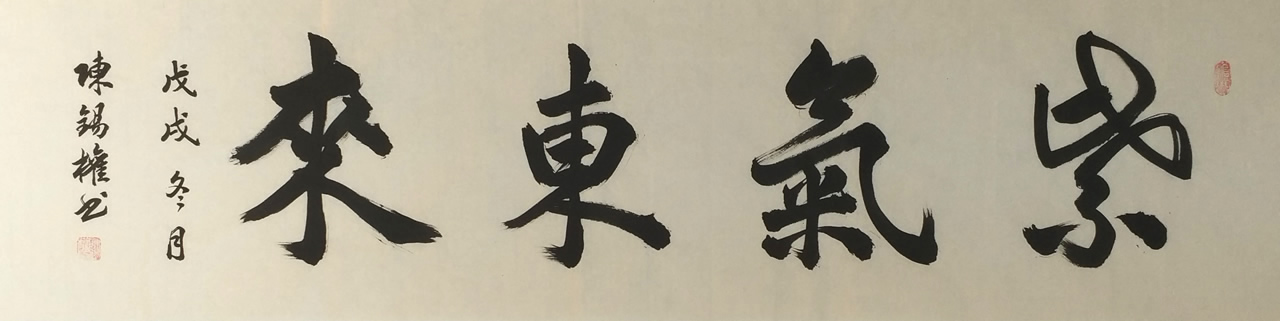 紫氣東來
戊戌冬月
陳錫權书